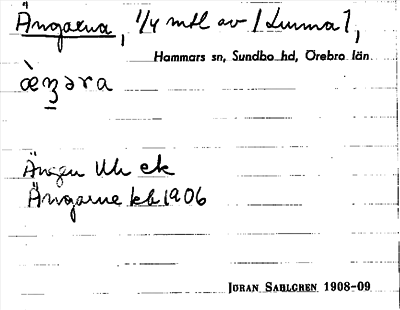 Ängarna, 1/4 mtl av /Lunna 1,
Hammars sn, Sundbo hd, Örebro län
Ängen Uh ek
Ängarne kb 1906
JÖRAN SAHLGREN 1908-09